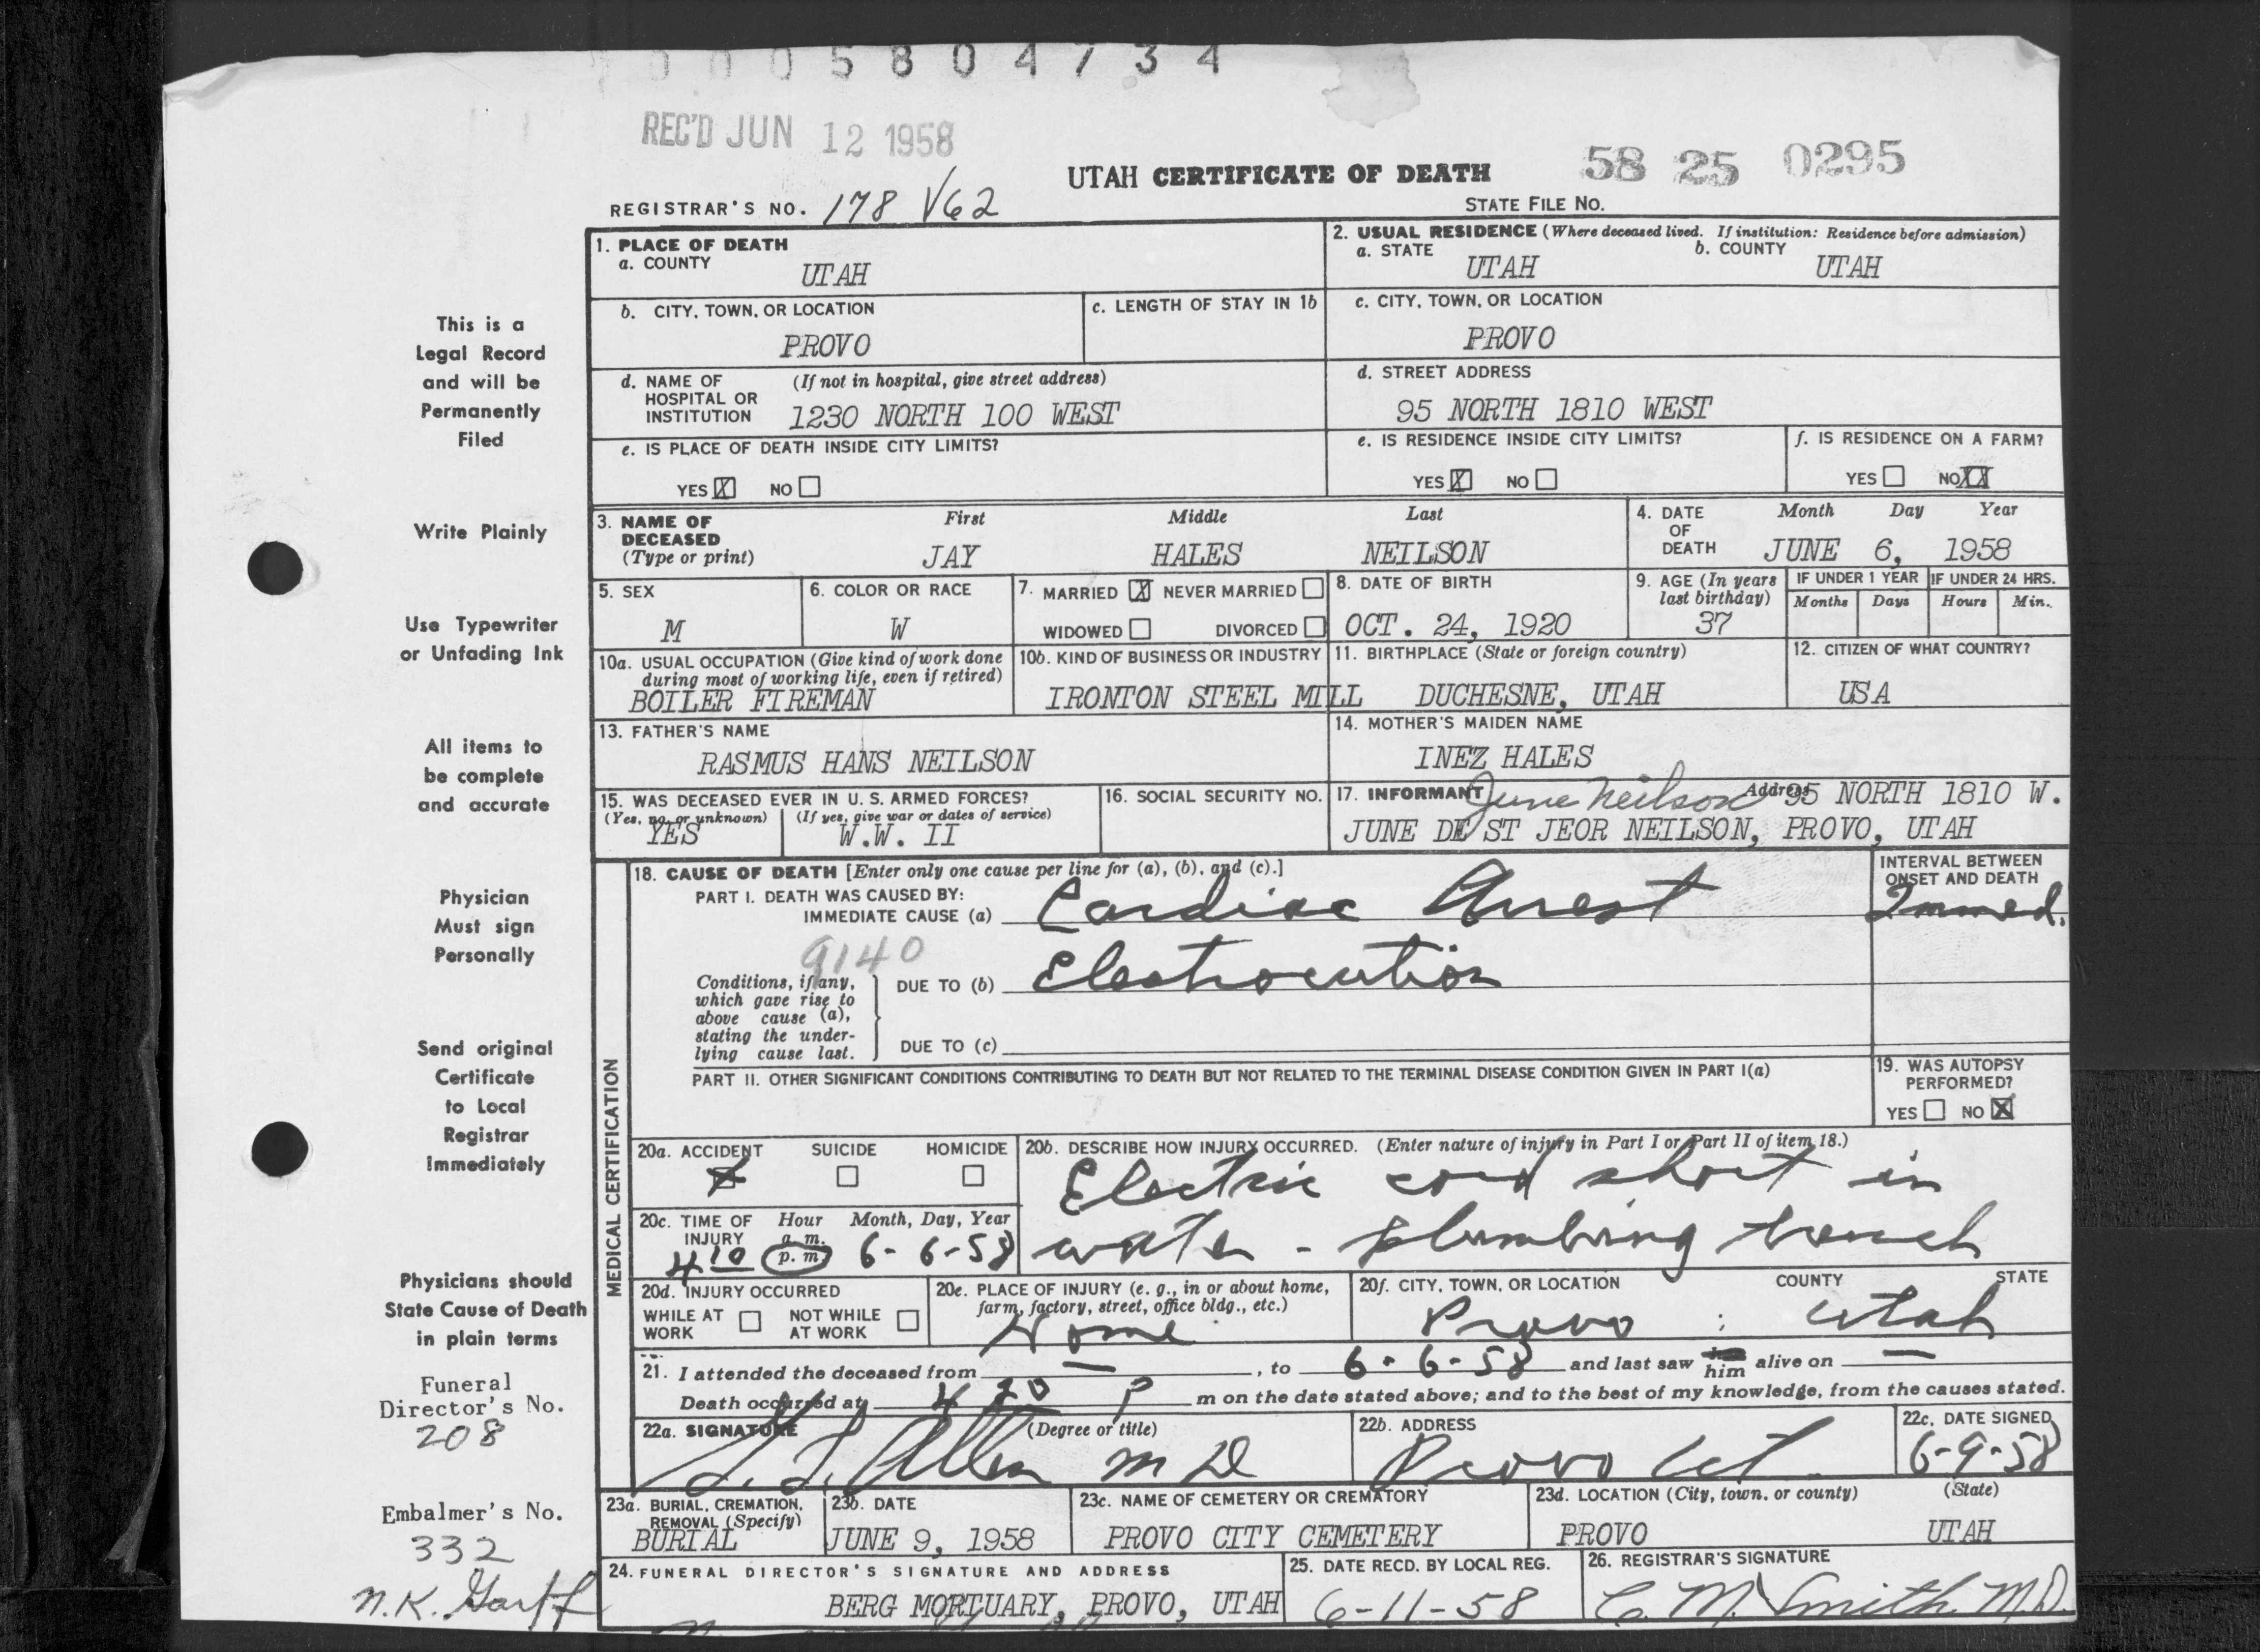 0005804734
REC'D JUN 12 1958
58 25 0295
UTAH CERTIFICATE OF DEATH
REGISTRAR'S NO. 178 V62
STATE FILE NO.
1. PLACE OF DEATH
a. COUNTY
UTAH
2. USUAL RESIDENCE (Where deceased lived. If institution: Residence before admission)
a. STATE
UTAH
b. COUNTY
UTAH
b. CITY, TOWN, OR LOCATION
PROVO
c. LENGTH OF STAY IN 1b
c. CITY, TOWN, OR LOCATION
PROVO
d. NAME OF HOSPITAL OR INSTITUTION
(If not in hospital, give street address)
1230 NORTH 100 WEST
d. STREET ADDRESS
95 NORTH 1810 WEST
e. IS PLACE OF DEATH INSIDE CITY LIMITS?
YES X NO
e. IS RESIDENCE INSIDE CITY LIMITS?
YES X NO
f. IS RESIDENCE ON A FARM?
YES NO XX
3. NAME OF DECEASED
(Type or print)
First
JAY
Middle
HALES
Last
NEILSON
4. DATE OF DEATH
Month Day Year
JUNE 6, 1958
5. SEX
M
6. COLOR OR RACE
W
7. MARRIED X NEVER MARRIED
WIDOWED DIVORCED
8. DATE OF BIRTH
OCT. 24, 1920
9. AGE (In years last birthday)
37
IF UNDER 1 YEAR
Months Days
IF UNDER 24 HRS.
Hours Min.
10a. USUAL OCCUPATION (Give kind of work done during most of working life, even if retired)
BOILER FIREMAN
10b. KIND OF BUSINESS OR INDUSTRY
IRONTON STEEL MILL
11. BIRTHPLACE (State or foreign country)
DUCHESNE, UTAH
12. CITIZEN OF WHAT COUNTRY?
USA
13. FATHER'S NAME
RASMUS HANS NEILSON
14. MOTHER'S MAIDEN NAME
INEZ HALES
15. WAS DECEASED EVER IN U. S. ARMED FORCES?
(Yes, no, or unknown) (If yes, give war or dates of service)
YES W.W. II
16. SOCIAL SECURITY NO.
17. INFORMANT June Neilson Address 95 NORTH 1810 W.
JUNE DE ST JEOR NEILSON, PROVO, UTAH
MEDICAL CERTIFICATION
18. CAUSE OF DEATH [Enter only one cause per line for (a), (b), and (c).]
PART I. DEATH WAS CAUSED BY:
IMMEDIATE CAUSE (a) Cardiac Arrest
INTERVAL BETWEEN ONSET AND DEATH
Immed.
9140
Conditions, if any, which gave rise to above cause (a), stating the underlying cause last.
DUE TO (b) Electrocution
DUE TO (c)
PART II. OTHER SIGNIFICANT CONDITIONS CONTRIBUTING TO DEATH BUT NOT RELATED TO THE TERMINAL DISEASE CONDITION GIVEN IN PART I(a)
19. WAS AUTOPSY PERFORMED?
YES NO X
20a. ACCIDENT SUICIDE HOMICIDE
X
20b. DESCRIBE HOW INJURY OCCURRED. (Enter nature of injury in Part I or Part II of item 18.)
Electric cord short in
water - plumbing trench
20c. TIME OF INJURY
Hour Month, Day, Year
a. m.
4 10 p. m. 6-6-58
20d. INJURY OCCURRED
WHILE AT WORK NOT WHILE AT WORK
20e. PLACE OF INJURY (e. g., in or about home, farm, factory, street, office bldg., etc.)
Home
20f. CITY, TOWN, OR LOCATION COUNTY STATE
Provo ; Utah
21. I attended the deceased from — , to 6-6-58 and last saw him alive on —
Death occurred at 4 20 P m on the date stated above; and to the best of my knowledge, from the causes stated.
22a. SIGNATURE (Degree or title)
Allen M D
22b. ADDRESS
Provo Ut
22c. DATE SIGNED
6-9-58
23a. BURIAL, CREMATION, REMOVAL (Specify)
BURIAL
23b. DATE
JUNE 9, 1958
23c. NAME OF CEMETERY OR CREMATORY
PROVO CITY CEMETERY
23d. LOCATION (City, town, or county) (State)
PROVO UTAH
24. FUNERAL DIRECTOR'S SIGNATURE AND ADDRESS
BERG MORTUARY, PROVO, UTAH
25. DATE RECD. BY LOCAL REG.
6-11-58
26. REGISTRAR'S SIGNATURE
C. M. Smith M.D.
This is a
Legal Record
and will be
Permanently
Filed
Write Plainly
Use Typewriter
or Unfading Ink
All items to
be complete
and accurate
Physician
Must sign
Personally
Send original
Certificate
to Local
Registrar
immediately
Physicians should
State Cause of Death
in plain terms
Funeral
Director's No.
208
Embalmer's No.
332
N.K.